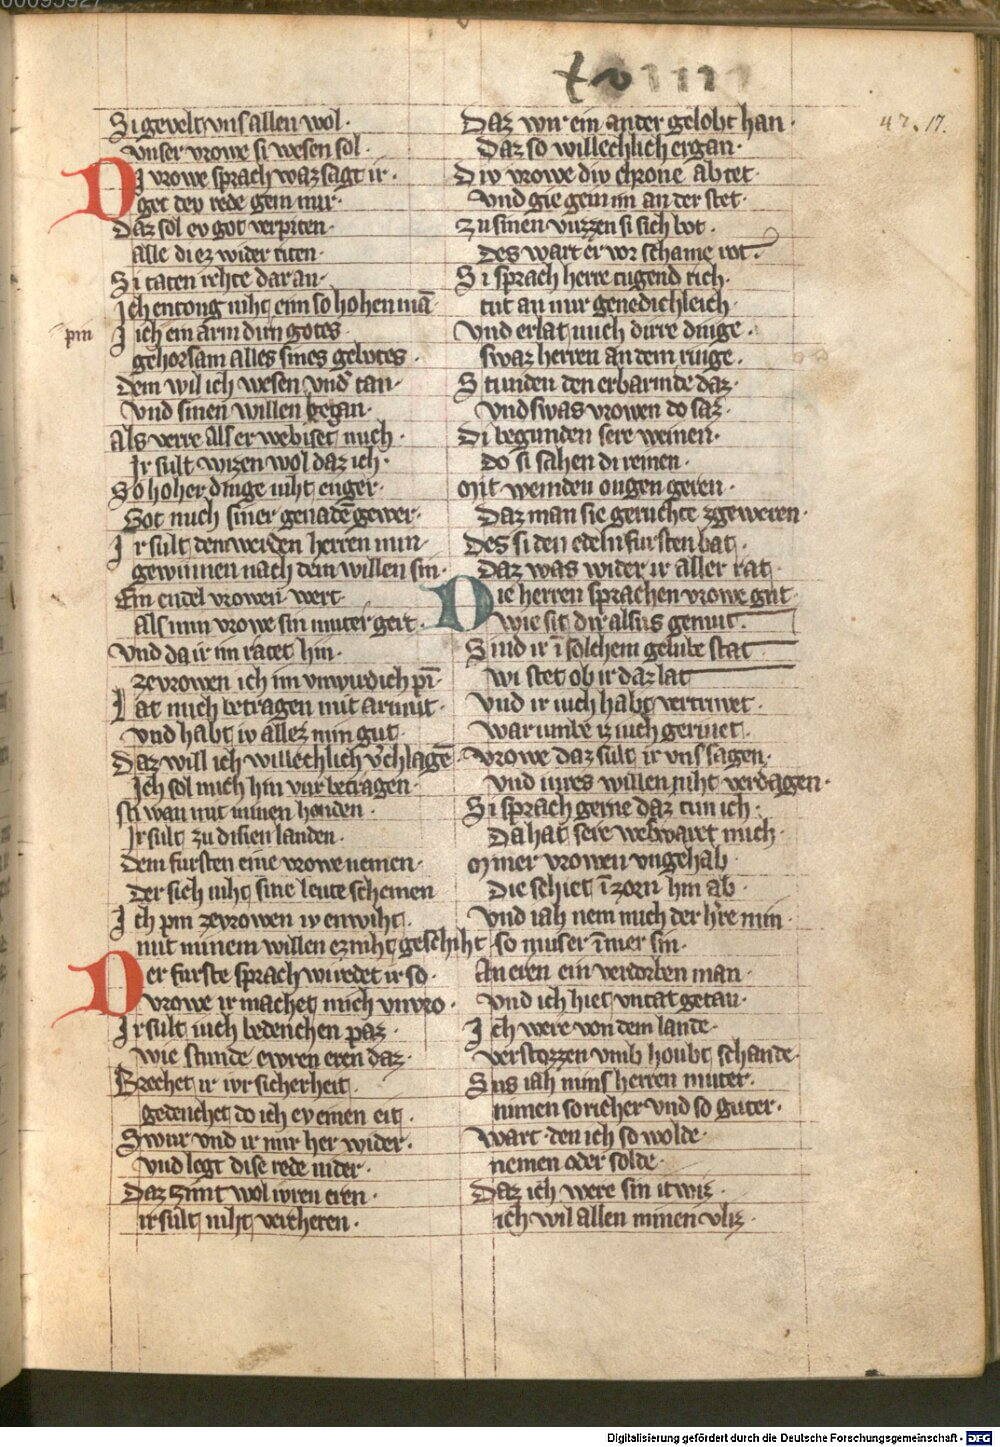 xviiii
47. 17.
Si gevelt vns allen wol·
vnser vrowe si wesen sol·
Di vrowe sprach waz sagt ir·
get dev rede gein mir·
Daz sol ev got verpiten·
alle diez wider riten·
Si taten rehte dar an·
Ich entong niht eim so hohen mā
pin
I ich ein arm dirn gotes·
gehorsam alles sines gebotes·
dem wil ich wesen vnd tan·
vnd sinen willen began·
Als verre als er webiset mich·
Ir sult wizen wol daz ich·
So hoher dinge niht enger·
Got mich siner genadē gewer·
Ir sult dem werden herren min·
gewinnen nach dem willen sin·
Ein endel vrowen wert·
Als min vrowe sin muter gert·
Vnd da ir im ratet hin·
zevrowen ich im vnwirdich pī·
Lat mich betragen mit armut·
vnd habt iv allez min gut·
Daz will ich willechlich v͛chlagē
Ich sol mich hin vur betragen·
swan mit minen henden·
Ir sult zu disen landen·
dem fursten eine vrowe nemen·
Der sich niht sine leute schemen
Ich pin zevrowen iv enwiht·
mit minem willen ez niht geschiht
Der furste sprach wi redet ir so·
vrowe ir machet mich vnvro·
Ir sult iuch bedenchen paz·
wie stunde ewren eren daz·
Brechet ir ivr sicherheit·
gedenchet do ich ev einen eit·
Swur vnd ir mir her wider·
vnd legt dise rede nider·
Daz zimt wol ivren eren·
ir sult niht vercheren·
Daz wir ein ander gelobt han·
Daz so willechlich ergan·
Div vrowe div chrone ab tet·
vnd gie gein im an der stet·
zu sinen vuzzen si sich bot·
des wart er vor schame rot·
Si sprach herre tugend rich·
tut an mir genedichleich·
Vnd erlat mich dirre dinge·
swaz herren an dem ringe·
Stunden den erbarmde daz·
vnd swas vrowen do saz·
Di begunden sere weinen·
do si sahen di reinen·
Mit weinden ougen geren·
Daz man sie geruchte zgeweren·
Des si den edeln fursten bat·
Daz was wider ir aller rat·
Die herren sprachen vrowe gut
wie sit dir alsus gemut·
Sind ir ī solchem gelube stat
wi stet ob ir daz lat
Vnd ir iuch habt vertriwet·
war umbe iz iuch geriuet·
Vrowe daz sult ir vns sagen·
vnd iures willen niht verdagen·
Si sprach gerne daz tun ich·
Da hat sere beswaret mich·
Miner vrowen vngehab·
Die schiet ī zorn hin ab·
Vnd iah nem mich der h͛re min·
so muser īmer sin·
An eren ein verdorben man·
vnd ich hiet vntat getan·
Ich were von dem lande·
verstozzen vmb houbt schande·
Sus iah mins herren muter·
nimen so richer vnd so guter·
Wart den ich so wolde·
nemen oder solde·
Daz ich were sin itwiz·
ich wil allen minen vliz·
Digitalisierung gefördert durch die Deutsche Forschungsgemeinschaft - DFG